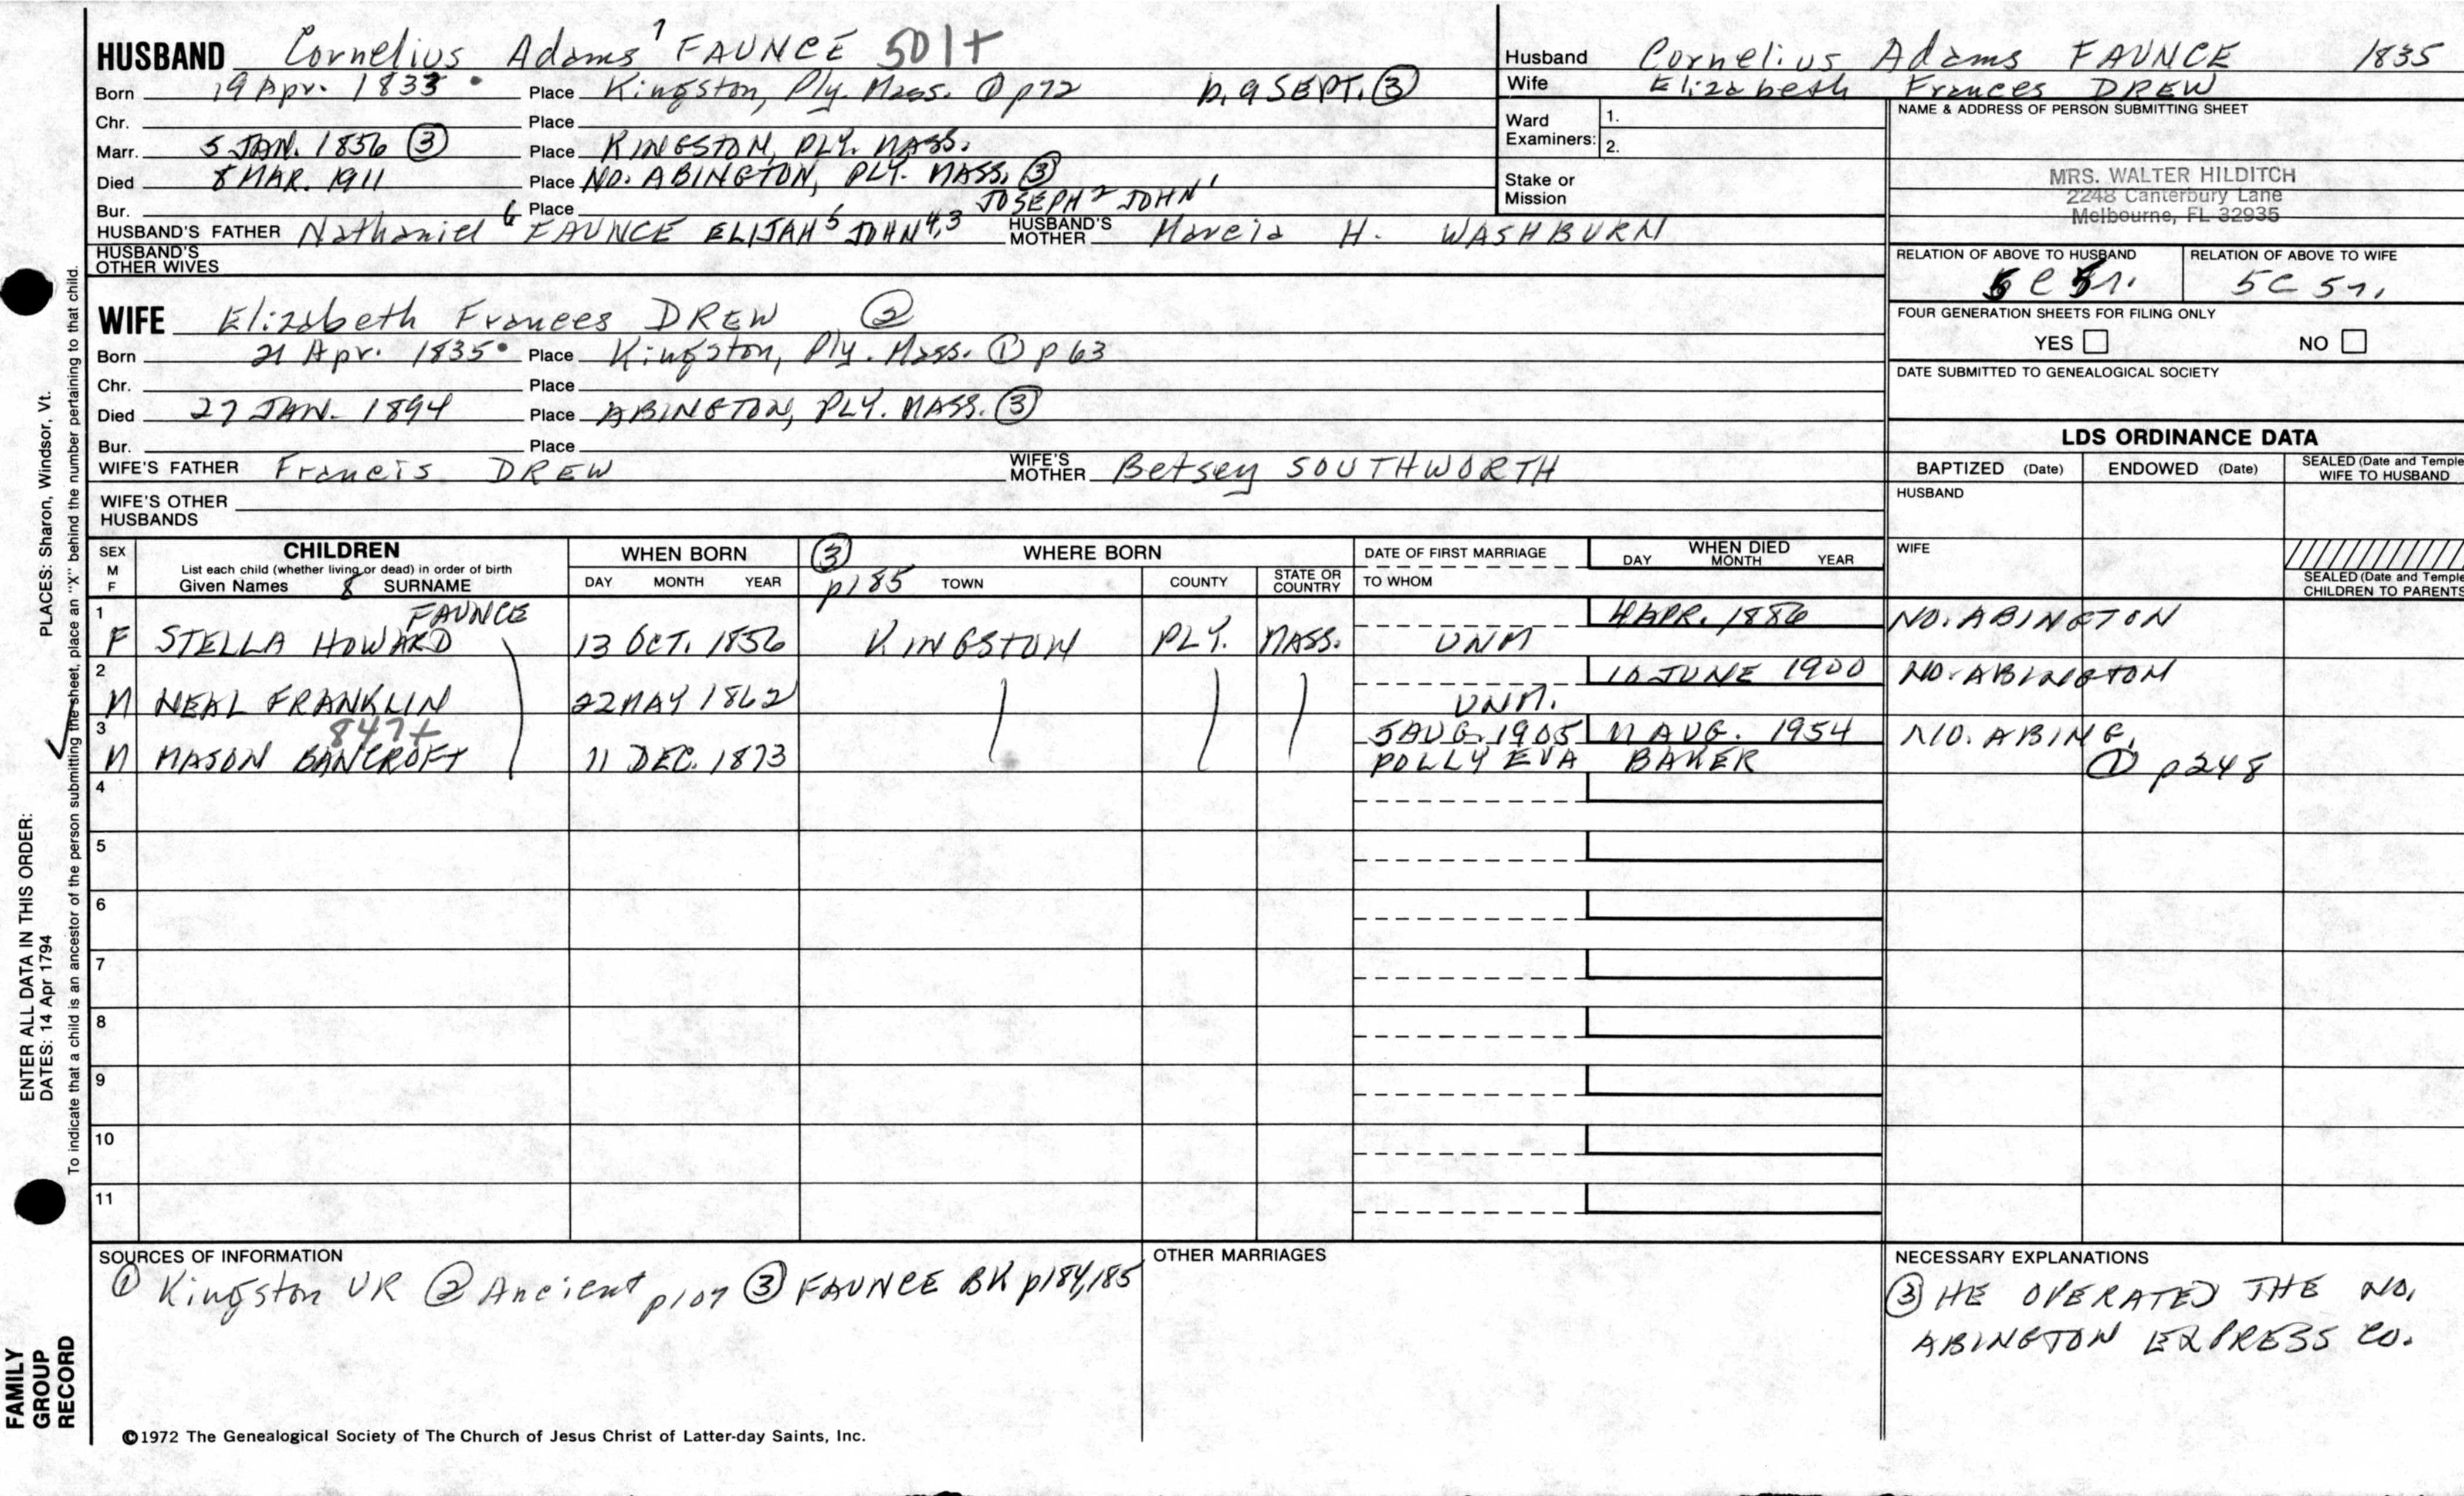 HUSBAND Cornelius Adams 7 FAUNCE 501+
Born 19 Apr. 1833 Place Kingston, Ply. Mass. ① p72 b. 9 SEPT. ③
Chr. Place
Marr. 5 JAN. 1856 ③ Place KINGSTON, PLY. MASS.
Died 8 MAR. 1911 Place NO. ABINGTON, PLY. MASS. ③
Bur. Place JOSEPH 2 JOHN 1
HUSBAND'S FATHER Nathaniel 6 FAUNCE ELIJAH 5 JOHN 4,3 HUSBAND'S MOTHER Marcia H. WASHBURN
HUSBAND'S OTHER WIVES
WIFE Elizabeth Frances DREW ②
Born 21 Apr. 1835 Place Kingston, Ply. Mass. ① p 63
Chr. Place
Died 27 JAN. 1894 Place ABINGTON, PLY. MASS. ③
Bur. Place
WIFE'S FATHER Francis DREW WIFE'S MOTHER Betsey SOUTHWORTH
WIFE'S OTHER HUSBANDS
Husband Cornelius Adams FAUNCE 1835
Wife Elizabeth Frances DREW
Ward Examiners: 1.
2.
Stake or Mission
NAME & ADDRESS OF PERSON SUBMITTING SHEET
MRS. WALTER HILDITCH
2248 Canterbury Lane
Melbourne, FL 32935
RELATION OF ABOVE TO HUSBAND RELATION OF ABOVE TO WIFE
5C 5r.
FOUR GENERATION SHEETS FOR FILING ONLY
YES NO
DATE SUBMITTED TO GENEALOGICAL SOCIETY
LDS ORDINANCE DATA
BAPTIZED (Date) ENDOWED (Date) SEALED (Date and Temple WIFE TO HUSBAND
HUSBAND
WIFE
SEALED (Date and Temple CHILDREN TO PARENTS
SEX M F CHILDREN WHEN BORN ③ WHERE BORN DATE OF FIRST MARRIAGE WHEN DIED
List each child (whether living or dead) in order of birth DAY MONTH YEAR
Given Names 8 SURNAME DAY MONTH YEAR p185 TOWN COUNTY STATE OR COUNTRY TO WHOM
1 FAUNCE 4 APR. 1886 NO. ABINGTON
F STELLA HOWARD 13 OCT. 1856 KINGSTON PLY. MASS. UNM
2 10 JUNE 1900 NO. ABINGTON
M NEAL FRANKLIN 22 MAY 1862 UNM.
3 847+ 5 AUG. 1905 11 AUG. 1954 NO. ABING.
M MASON BANCROFT 11 DEC. 1873 POLLY EVA BAKER ① p248
4
5
6
7
8
9
10
11
SOURCES OF INFORMATION
① Kingston VR ② Ancient p107 ③ FAUNCE BK p184,185
OTHER MARRIAGES
NECESSARY EXPLANATIONS
③ HE OPERATED THE NO.
ABINGTON EXPRESS CO.
©1972 The Genealogical Society of The Church of Jesus Christ of Latter-day Saints, Inc.
PLACES: Sharon, Windsor, Vt.
To indicate that a child is an ancestor of the person submitting the sheet, place an "X" behind the number pertaining to that child.
ENTER ALL DATA IN THIS ORDER:
DATES: 14 Apr 1794
FAMILY
GROUP
RECORD